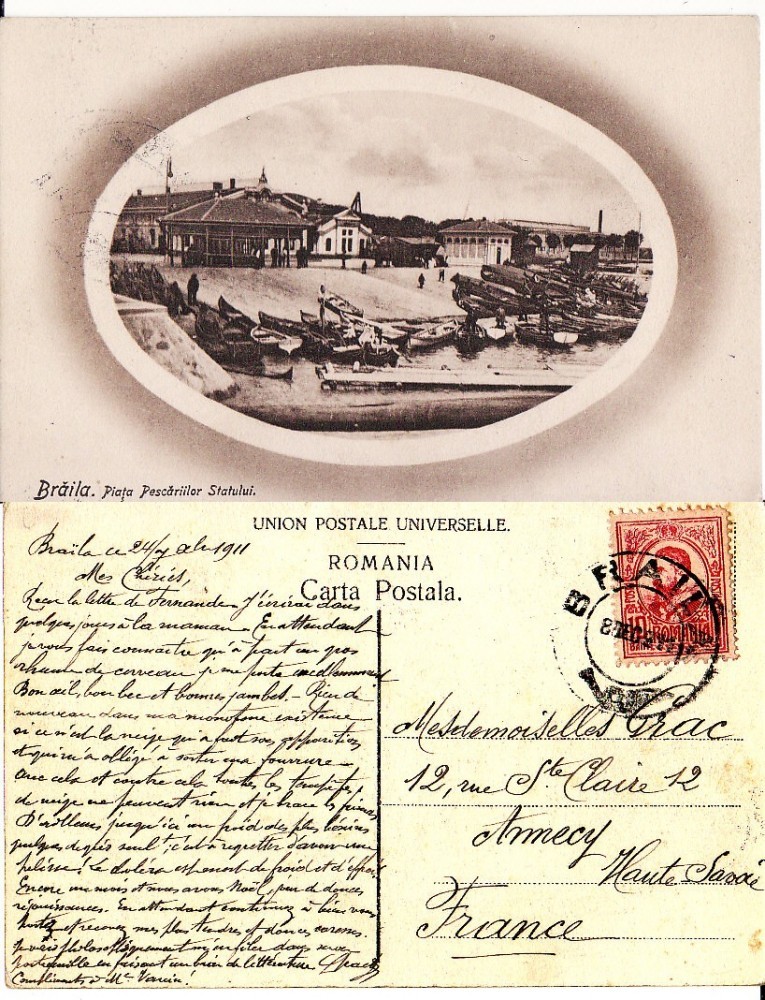 Brăila. Piața Pescăriilor Statului.
UNION POSTALE UNIVERSELLE.
ROMANIA
Carta Postala.
BRAILA
8 DEC
Braïla ce 24/7 1911
Mes Chéries,
Reçu la lettre de Fernande. J'écrirai dans
quelques jours à la maman. En attendant
je vous fais connaître qu'à part un gros
rhume de cerveau je me porte
Bon œil, bon bec et bonnes jambes. Rien de
nouveau dans ma monotone existence
si ce n'est la neige qui a fait son apparition
et qui m'a obligé à sortir ma fourrure
avec cela et contre cela toutes les tempêtes
de neige ne peuvent rien et je brave les
D'ailleurs jusqu'ici un froid des plus bénins
quelques degrés seul c'est à regretter d'avoir une
pelisse! Le choléra est mort de froid et
Encore un mois et nous avons Noël, de douces
réjouissances. En attendant continuez à bien vous
porter et recevez mes plus tendres et douces caresses.
philosophiquement dans
en faisant un brin de littérature
Compliments à Mr
Mesdemoiselles Drac
12, rue Ste Claire 12
Annecy
Haute Savoie
France